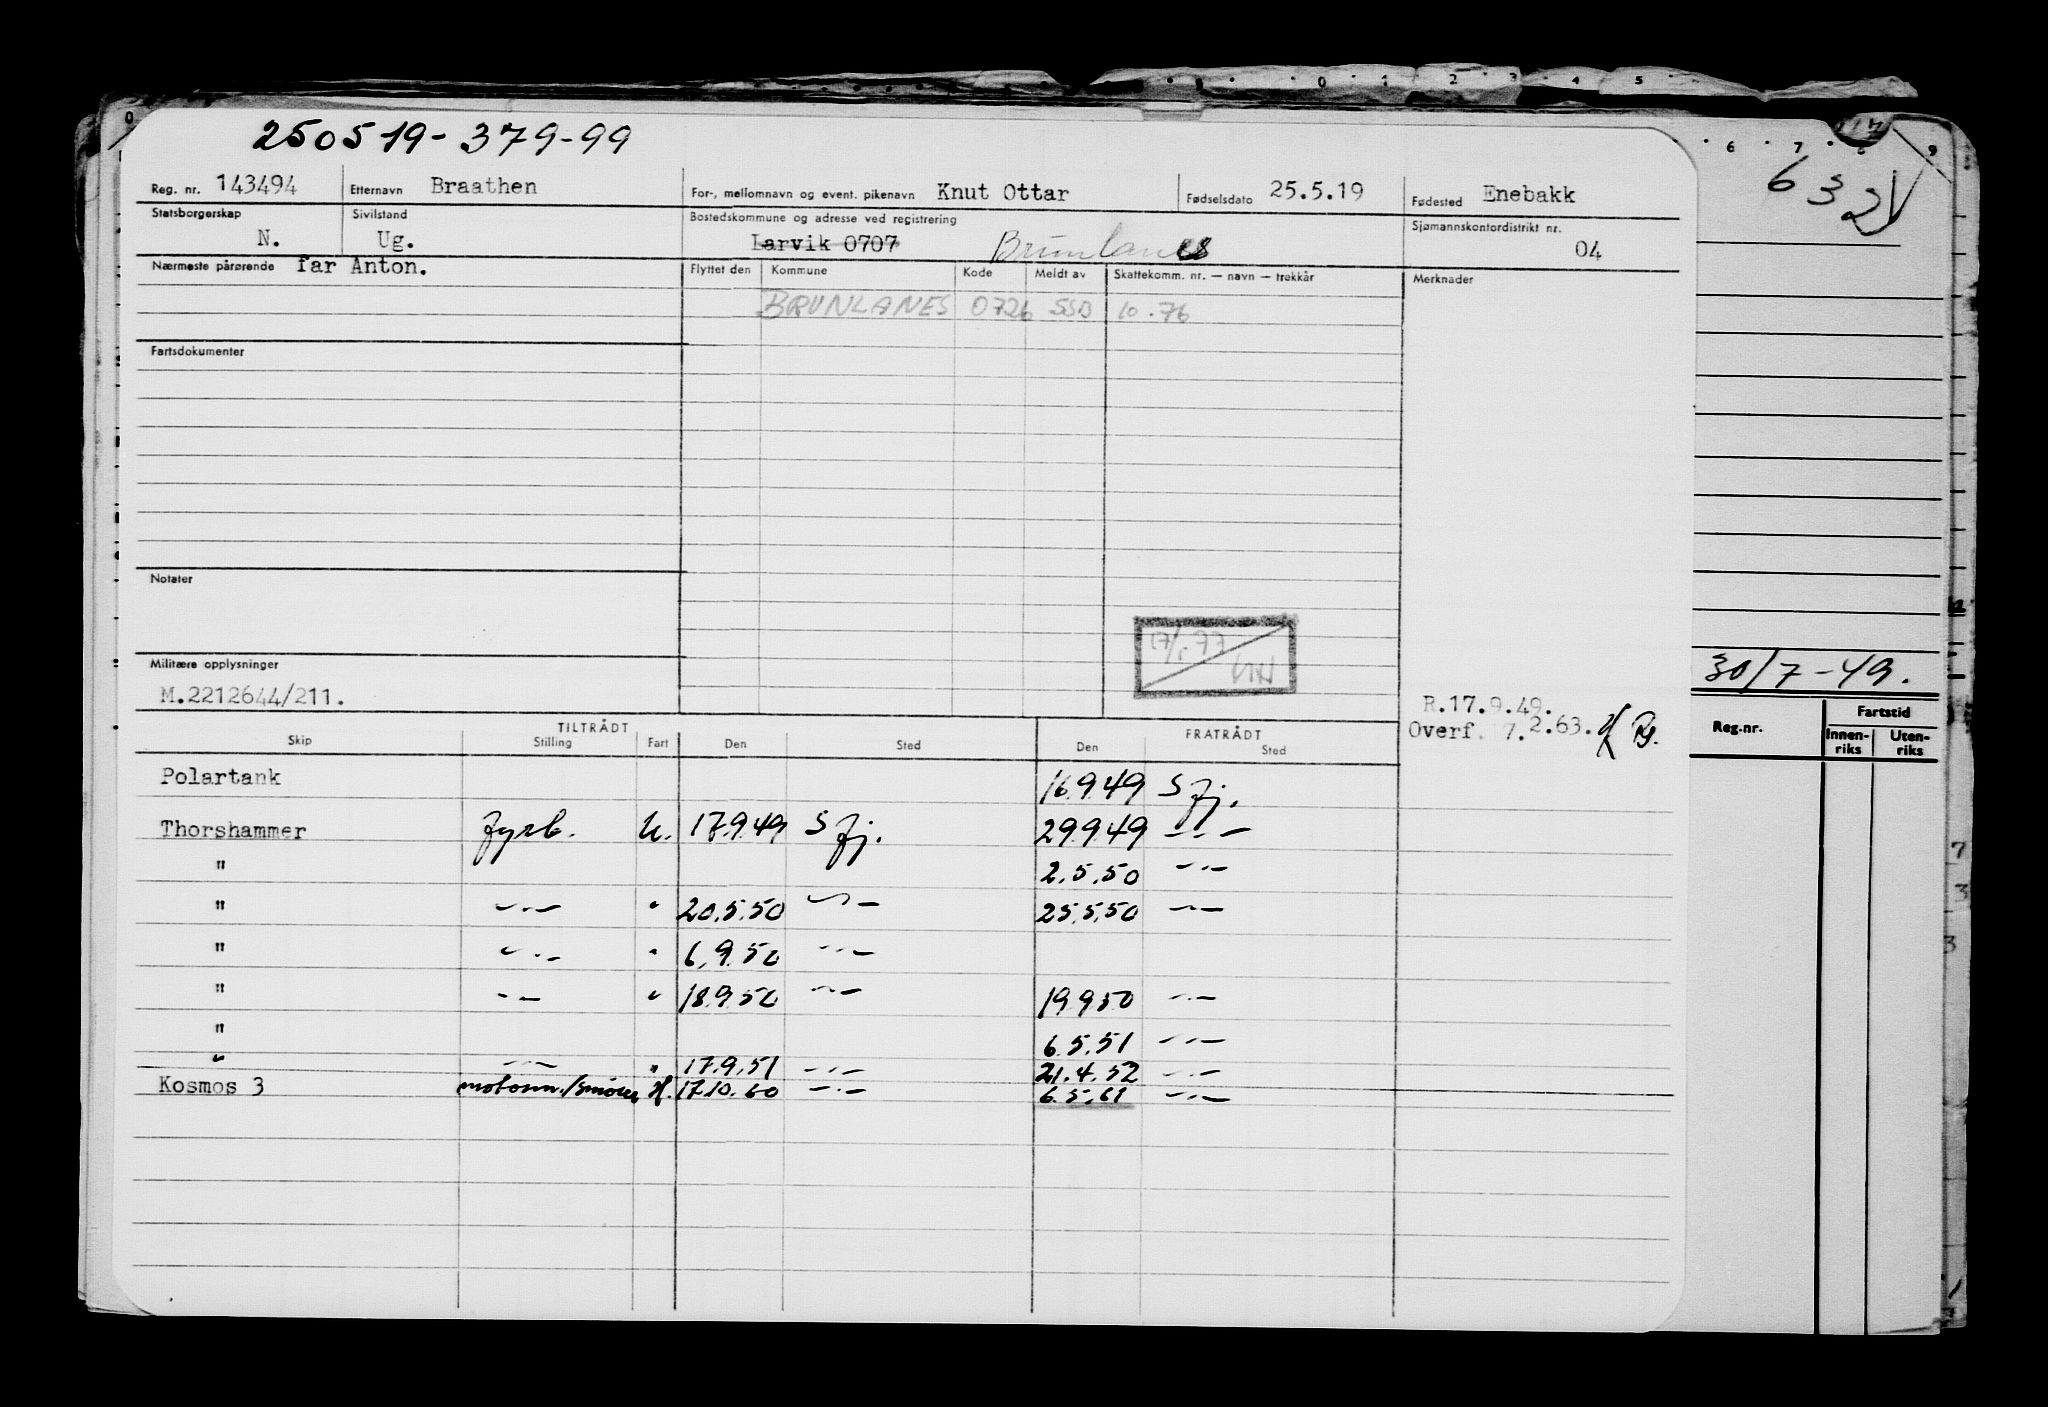 250519-379-99
Reg. nr. 143494 Etternavn Braathen For-, mellomnavn og event. pikenavn Knut Ottar Fødselsdato 25.5.19 Fødested Enebakk
Statsborgerskap N. Sivilstand Ug. Bostedskommune og adresse ved registrering Larvik 0707 Brunlanes Sjømannskontordistrikt nr. 04
Nærmeste pårørende far Anton. Flyttet den Kommune Kode Meldt av Skattekomm. nr. — navn — trekkår Merknader
BRUNLANES 0726 SSB 10.76
Fartsdokumenter
Notater
Militære opplysninger
M.2212644/211.
R.17.9.49.
Overf. 7.2.63.
TILTRÅDT FRATRÅDT
Skip Stilling Fart Den Sted Den Sted
Polartank 16.9.49 S fj.
Thorshammer fyrb. U. 17.9.49 S fj. 29.9.49 -"-
" 2.5.50 -"-
" -"- " 20.5.50 -"- 25.5.50 -"-
" -"- " 6.9.50 -"-
" -"- " 18.9.50 -"- 19.9.50 -"-
" 6.5.51 -"-
" -"- " 17.9.51 -"- 21.4.52 -"-
Kosmos 3 motorm./smører H. 17.10.60 -"- 6.5.61 -"-
632
30/7-49.
Reg.nr. Fartstid
Innen-riks Uten-riks